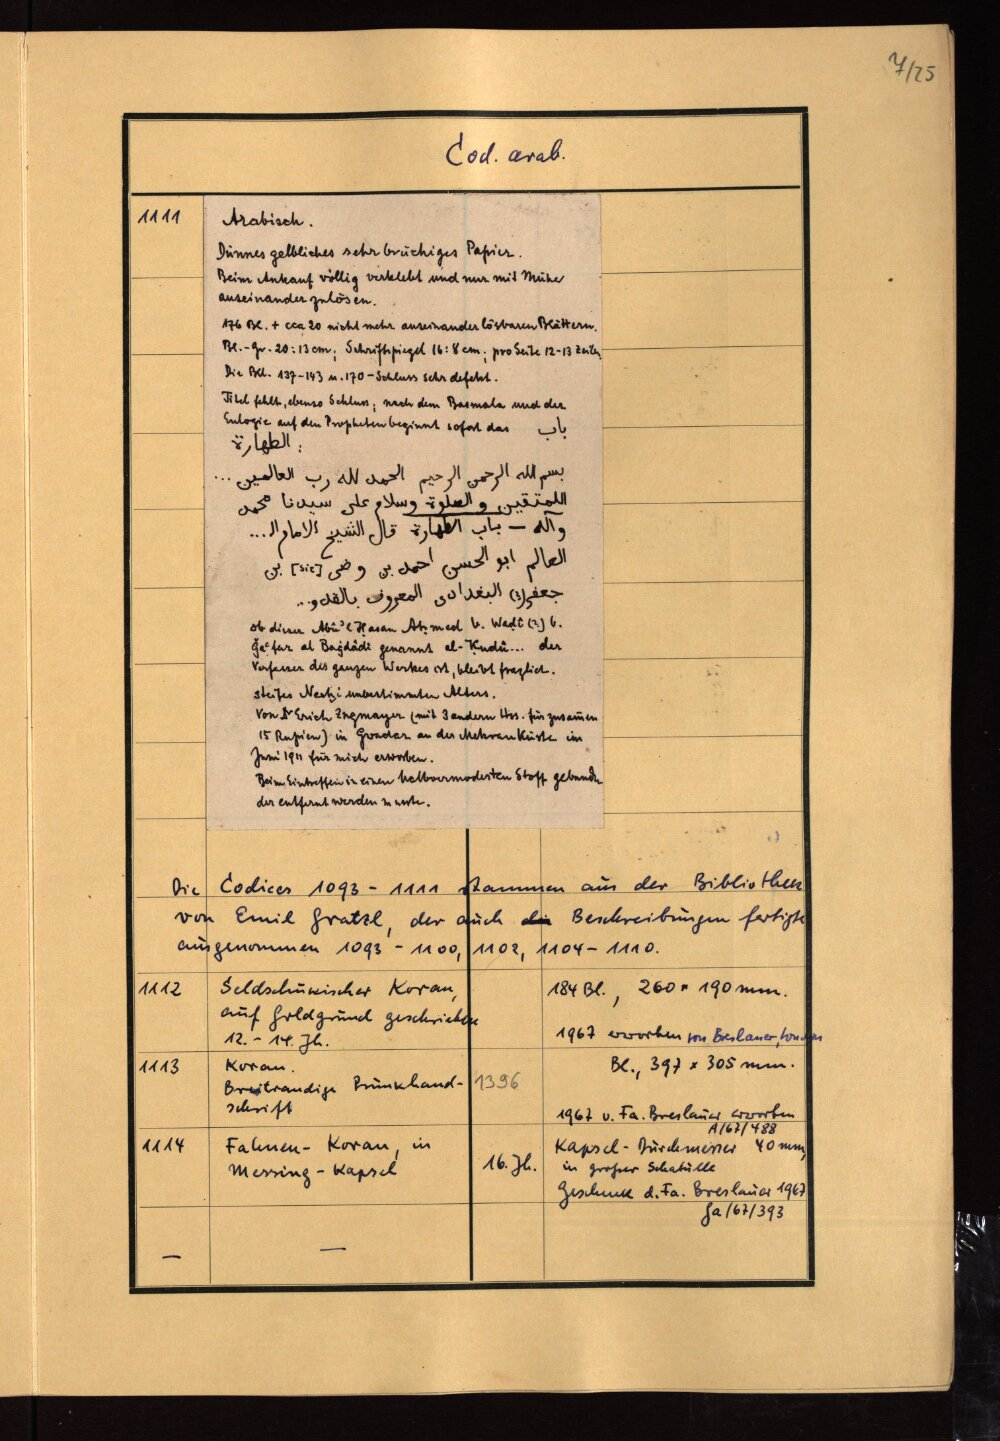 7/25
Cod. arab.
1111
Arabisch.
Dünnes gelbliches sehr brüchiges Papier.
Beim Ankauf völlig verklebt und nur mit Mühe
auseinander zulösen.
176 Bl. + cca 20 nicht mehr auseinander lösbaren Blättern.
Bl.-Gr. 20:13 cm; Schriftspiegel 16:8 cm; pro Seite 12-13 Zeilen
Die Bll. 137-143 u. 170-Schluss sehr defekt.
Titel fehlt, ebenso Schluss; nach dem Basmala und der
Eulogie auf den Propheten beginnt sofort das باب
الطهارة :
بسم الله الرحمن الرحيم الحمد لله رب العالمين ...
للمتقين و الصلوة وسلام على سيدنا محمد
وآله — باب الطهارة قال الشيخ الامام ال...
العالم ابو الحسن احمد بن وضى [sic] بن
جعفر (?) البغدادى المعروف بالقدو...
ob dieser Abū'l Ḥasan Aḥmed b. Waḍî (?) b.
Ǧaʿfar al Baġdâdî genannt el-Ḳudû... der
Verfasser des ganzen Werkes ist, bleibt fraglich.
steifes Nesḫî unbestimmten Alters.
Von Dr Erich Zugmayer (mit 3 andern Hss. für zusamen
15 Rupien) in Gwadar an der Mekran Küste im
Juni 1911 für mich erworben.
Beim Eintreffen in einen halbvermoderten Stoff gebunden
der entfernt werden musste.
Die Codices 1093 - 1111 stammen aus der Bibliothek
von Emil Gratzl, der auch die Beschreibungen fertigte
ausgenommen 1093 - 1100, 1102, 1104 - 1110.
1112
Seldschukischer Koran,
auf Goldgrund geschrieben
12. - 14. Jh.
184 Bl., 260 × 190 mm.
1967 erworben von Breslauer, London
1113
Koran.
Breitrandige Prunkhand-
schrift
1396
Bl., 397 × 305 mm.
1967 v. Fa. Breslauer erworben
A/67/488
1114
Fahnen - Koran, in
Messing - Kapsel
16. Jh.
Kapsel - Durchmesser 40 mm,
in großer Schatulle
Geschenk d. Fa. Breslauer 1967
Ga/67/393
— —